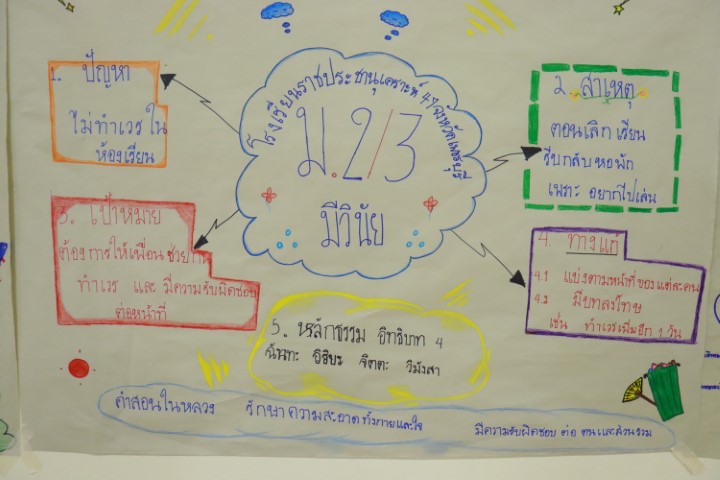 โรงเรียนราชประชานุเคราะห์ 47 จังหวัดเพชรบุรี
ม.2/3
มีวินัย
1. ปัญหา
ไม่ทำเวร ใน
ห้องเรียน
2. สาเหตุ
ตอนเลิก เรียน
รีบกลับ หอพัก
เพราะ อยากไปเล่น
3. เป้าหมาย
ต้องการให้เพื่อน ช่วยกัน
ทำเวร และ มีความรับผิดชอบ
ต่อหน้าที่
4. ทางแก้
4.1 แบ่งตามหน้าที่ของแต่ละคน
4.2 มีบทลงโทษ
เช่น ทำเวรเพิ่มอีก 1 วัน
5. หลักธรรม อิทธิบาท 4
ฉันทะ วิริยะ จิตตะ วิมังสา
คำสอนในหลวง รักษาความสะอาด ทั้งกายและใจ มีความรับผิดชอบ ต่อ ตนและส่วนรวม